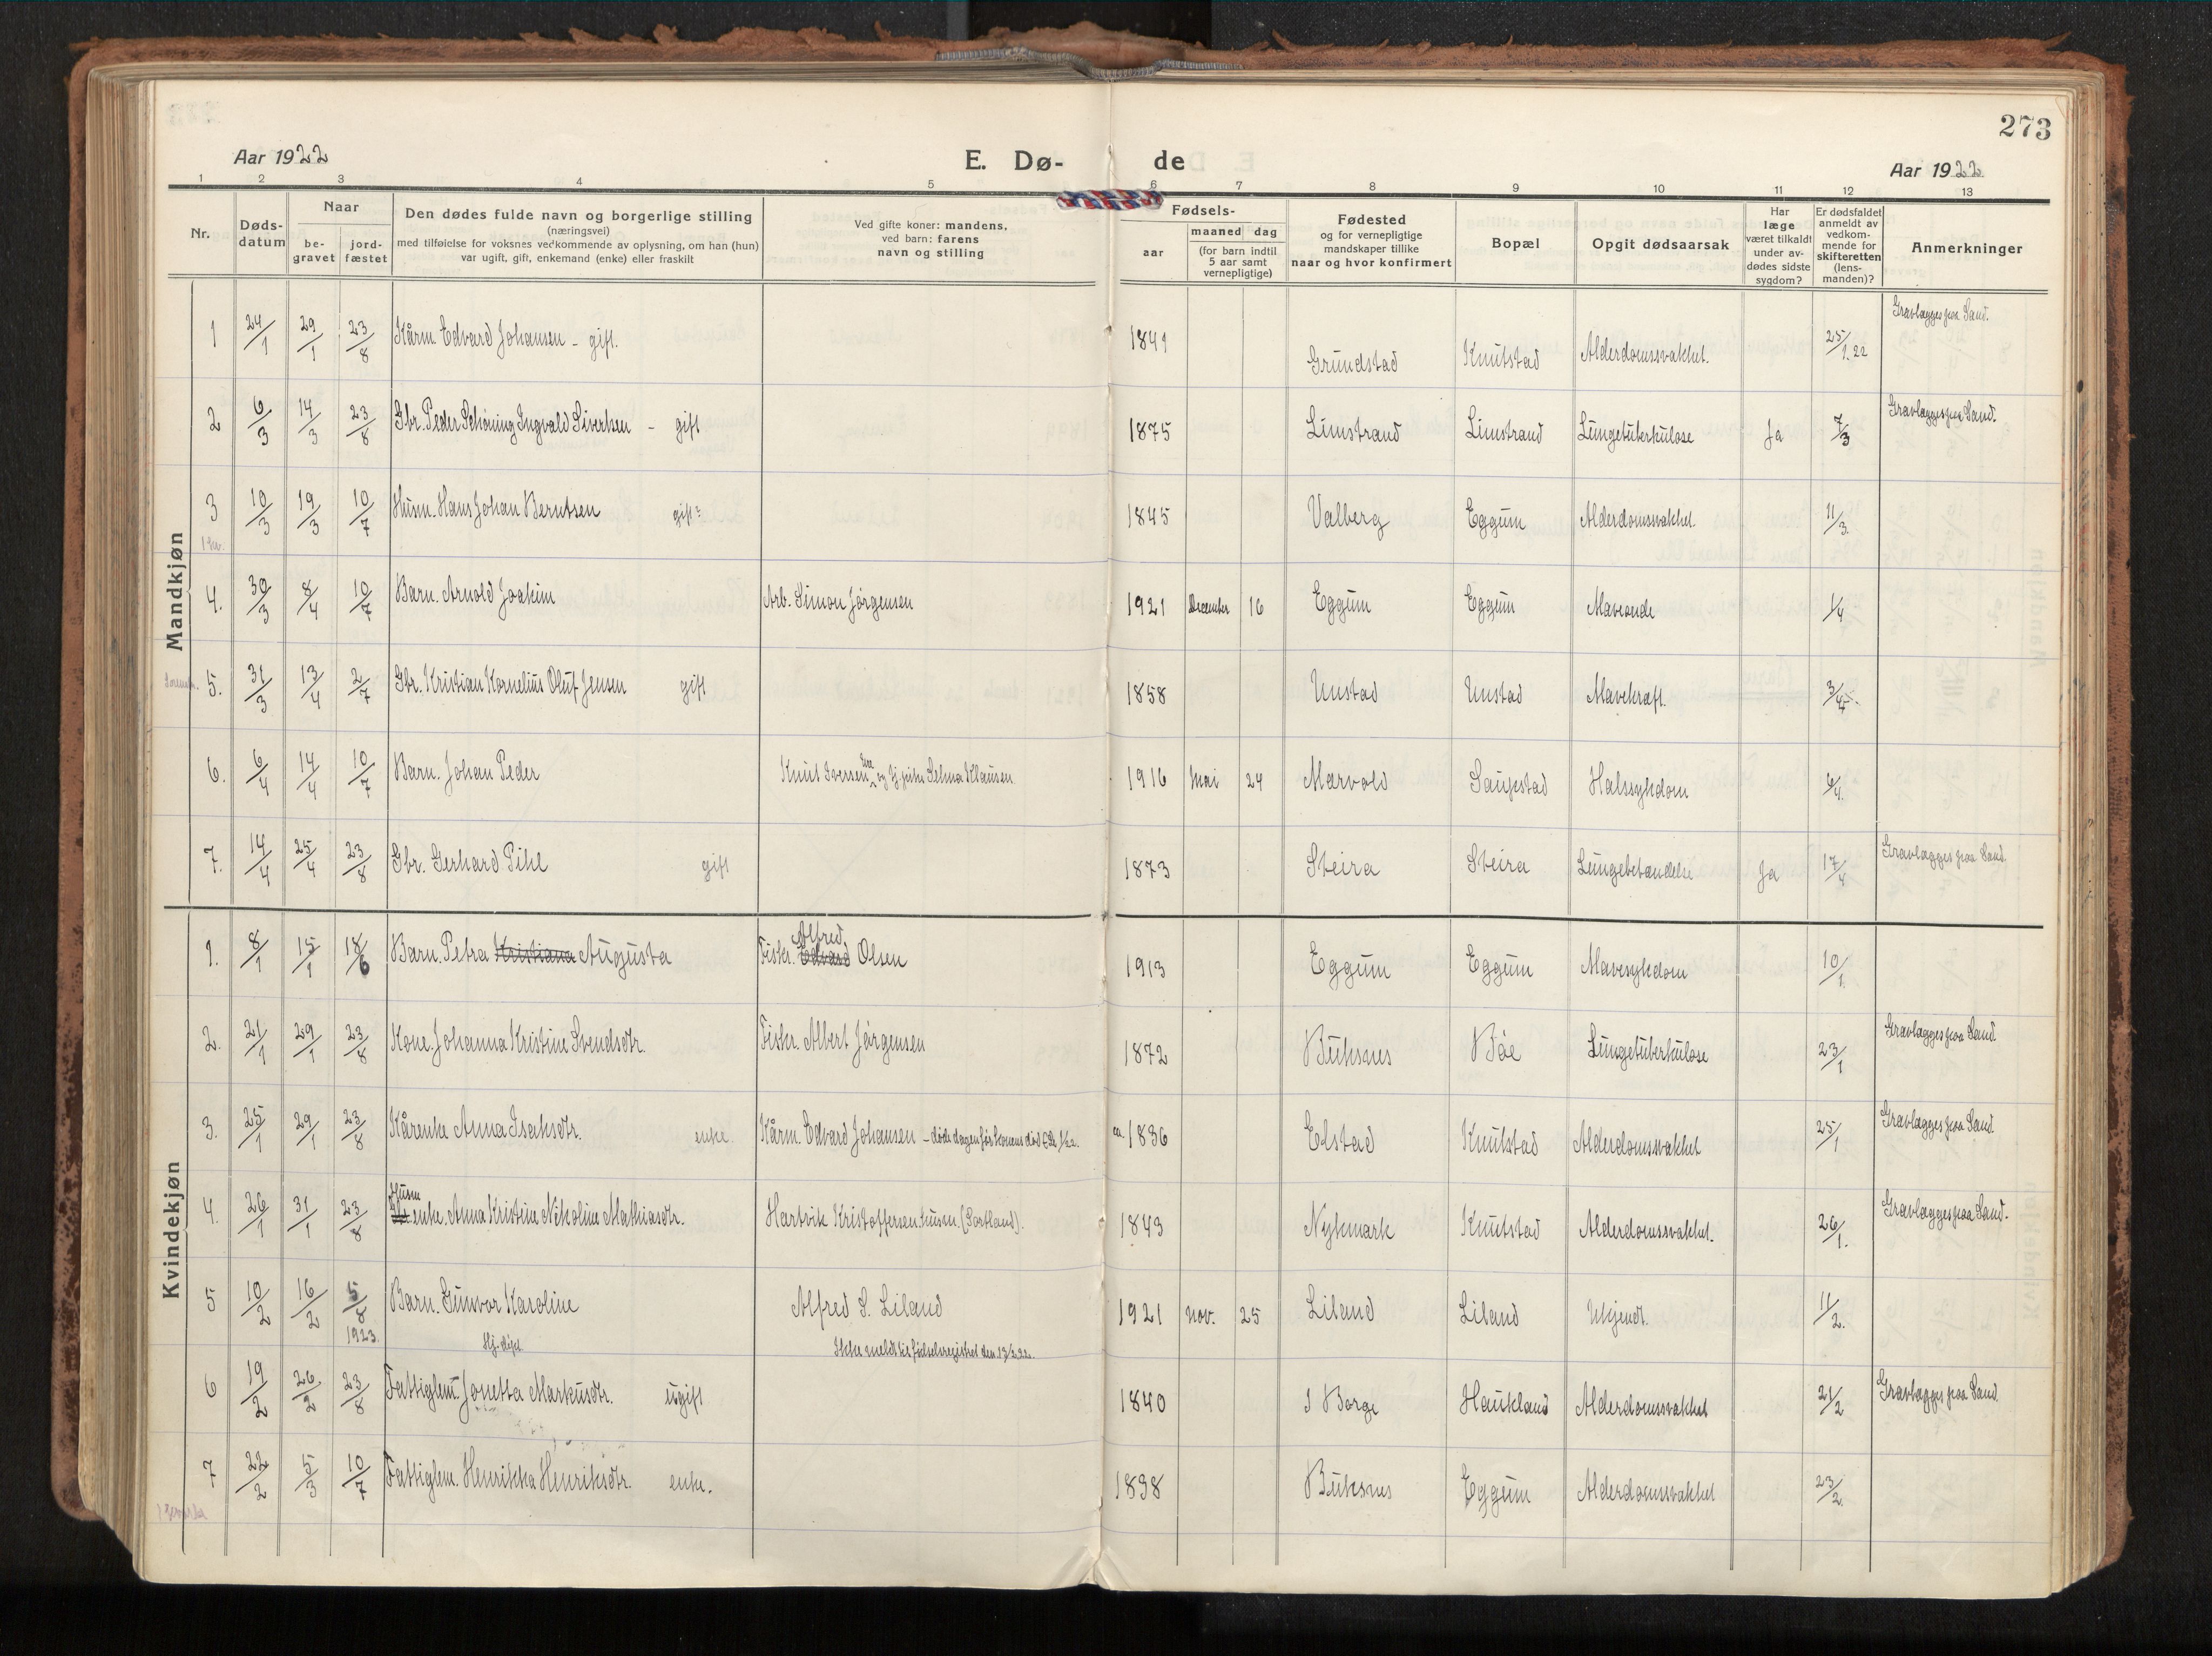 273
Aar 1922
E. Dø-
de
Aar 1922
1 2 3 4 5 6 7 8 9 10 11 12 13
Nr.
Døds-
datum
Naar
be-
gravet
jord-
fæstet
Den dødes fulde navn og borgerlige stilling
(næringsvei)
med tilføielse for voksnes vedkommende av oplysning, om han (hun)
var ugift, gift, enkemand (enke) eller fraskilt
Ved gifte koner: mandens,
ved barn: farens
navn og stilling
Fødsels-
aar
maaned dag
(for barn indtil
5 aar samt
vernepligtige)
Fødested
og for vernepligtige
mandskaper tillike
naar og hvor konfirmert
Bopæl
Opgit dødsaarsak
Har
læge
været tilkaldt
under av-
dødes sidste
sygdom?
Er dødsfaldet
anmeldt av
vedkom-
mende for
skifteretten
(lens-
manden)?
Anmerkninger
Mandkjøn
1 24/1 29/1 23/8 Kårm. Edvard Johansen - gift. 1841 Grundstad Knutstad Alderdomssvakhet. 25/1.22 Gravlægges paa Sand.
2 6/3 14/3 23/8 Gbr. Peder Schøning Ingvald Sivertsen - gift 1875 Limstrand Limstrand Lungetuberkulose Ja 7/3 Gravlægges paa Sand.
3 10/3 19/3 10/7 Husm. Hans Johan Berntsen gift 1845 Valberg Eggum Alderdomssvakhet. 11/3.
4. 30/3 8/4 10/7 Barn. Arnold Joakim Arb. Simon Jørgensen 1921 December 16 Eggum Eggum Maveonde 1/4
5. 31/3 13/4 2/7 Gbr. Kristian Kornelius Oluf Jensen gift 1858 Unstad Unstad Mavekræft. 3/4
6. 6/4 14/4 10/7 Barn. Johan Peder Knut Iversen og Selma Klausen 1916 Mai 24 Mærvold Saupstad Halssykdom 6/4.
7. 14/4 25/4 23/8 Gbr. Gerhard Pihl gift 1873 Steira Steira Lungebetændelse Ja 17/4 Gravlægges paa Sand.
Kvindekjøn
1. 8/1 15/1 18/6 Barn. Petra Kristiana Augusta Fisker. Edvard Alfred Olsen 1913 Eggum Eggum Mavesykdom 10/1.
2. 21/1 29/1 23/8 Kone. Johanna Kristine Svendsdtr. Fisker. Albert Jørgensen 1872 Buksnes Bøe Lungetuberkulose 23/1 Gravlægges paa Sand.
3. 25/1 29/1 23/8 Kårenke Anna Isaksdtr. enke. Kårm. Edvard Johansen - døde dagen før konens død 24/1 22. ca. 1836 Elstad Knutstad Alderdomssvakhet 25/1 Gravlægges paa Sand.
4. 26/1 31/1 23/8 Husm enke. Anna Kristine Nikoline Mathiasdtr. Hartvik Kristoffersen husm. (Sortland). 1843 Nykmark Knutstad Alderdomssvakhet. 26/1. Gravlægges paa Sand.
5 10/2 16/2 5/8 1923 Barn. Gunvor Karoline Hj.døpt Alfred S. Liland 1921 Nov. 25 Liland Liland Ukjendt. 11/2.
Ikke meldt til fødselsregistret den 13/2 22.
6 19/2 26/2 23/8 Fattiglem. Jonetta Markusdtr. ugift 1840 I Borge Haukland Alderdomssvakhet 21/2 Gravlægges paa Sand.
7 22/2 5/3 10/7 Fattiglem. Henrikka Henriksdtr. enke. 1838 Buksnes Eggum Alderdomssvakhet 23/2.